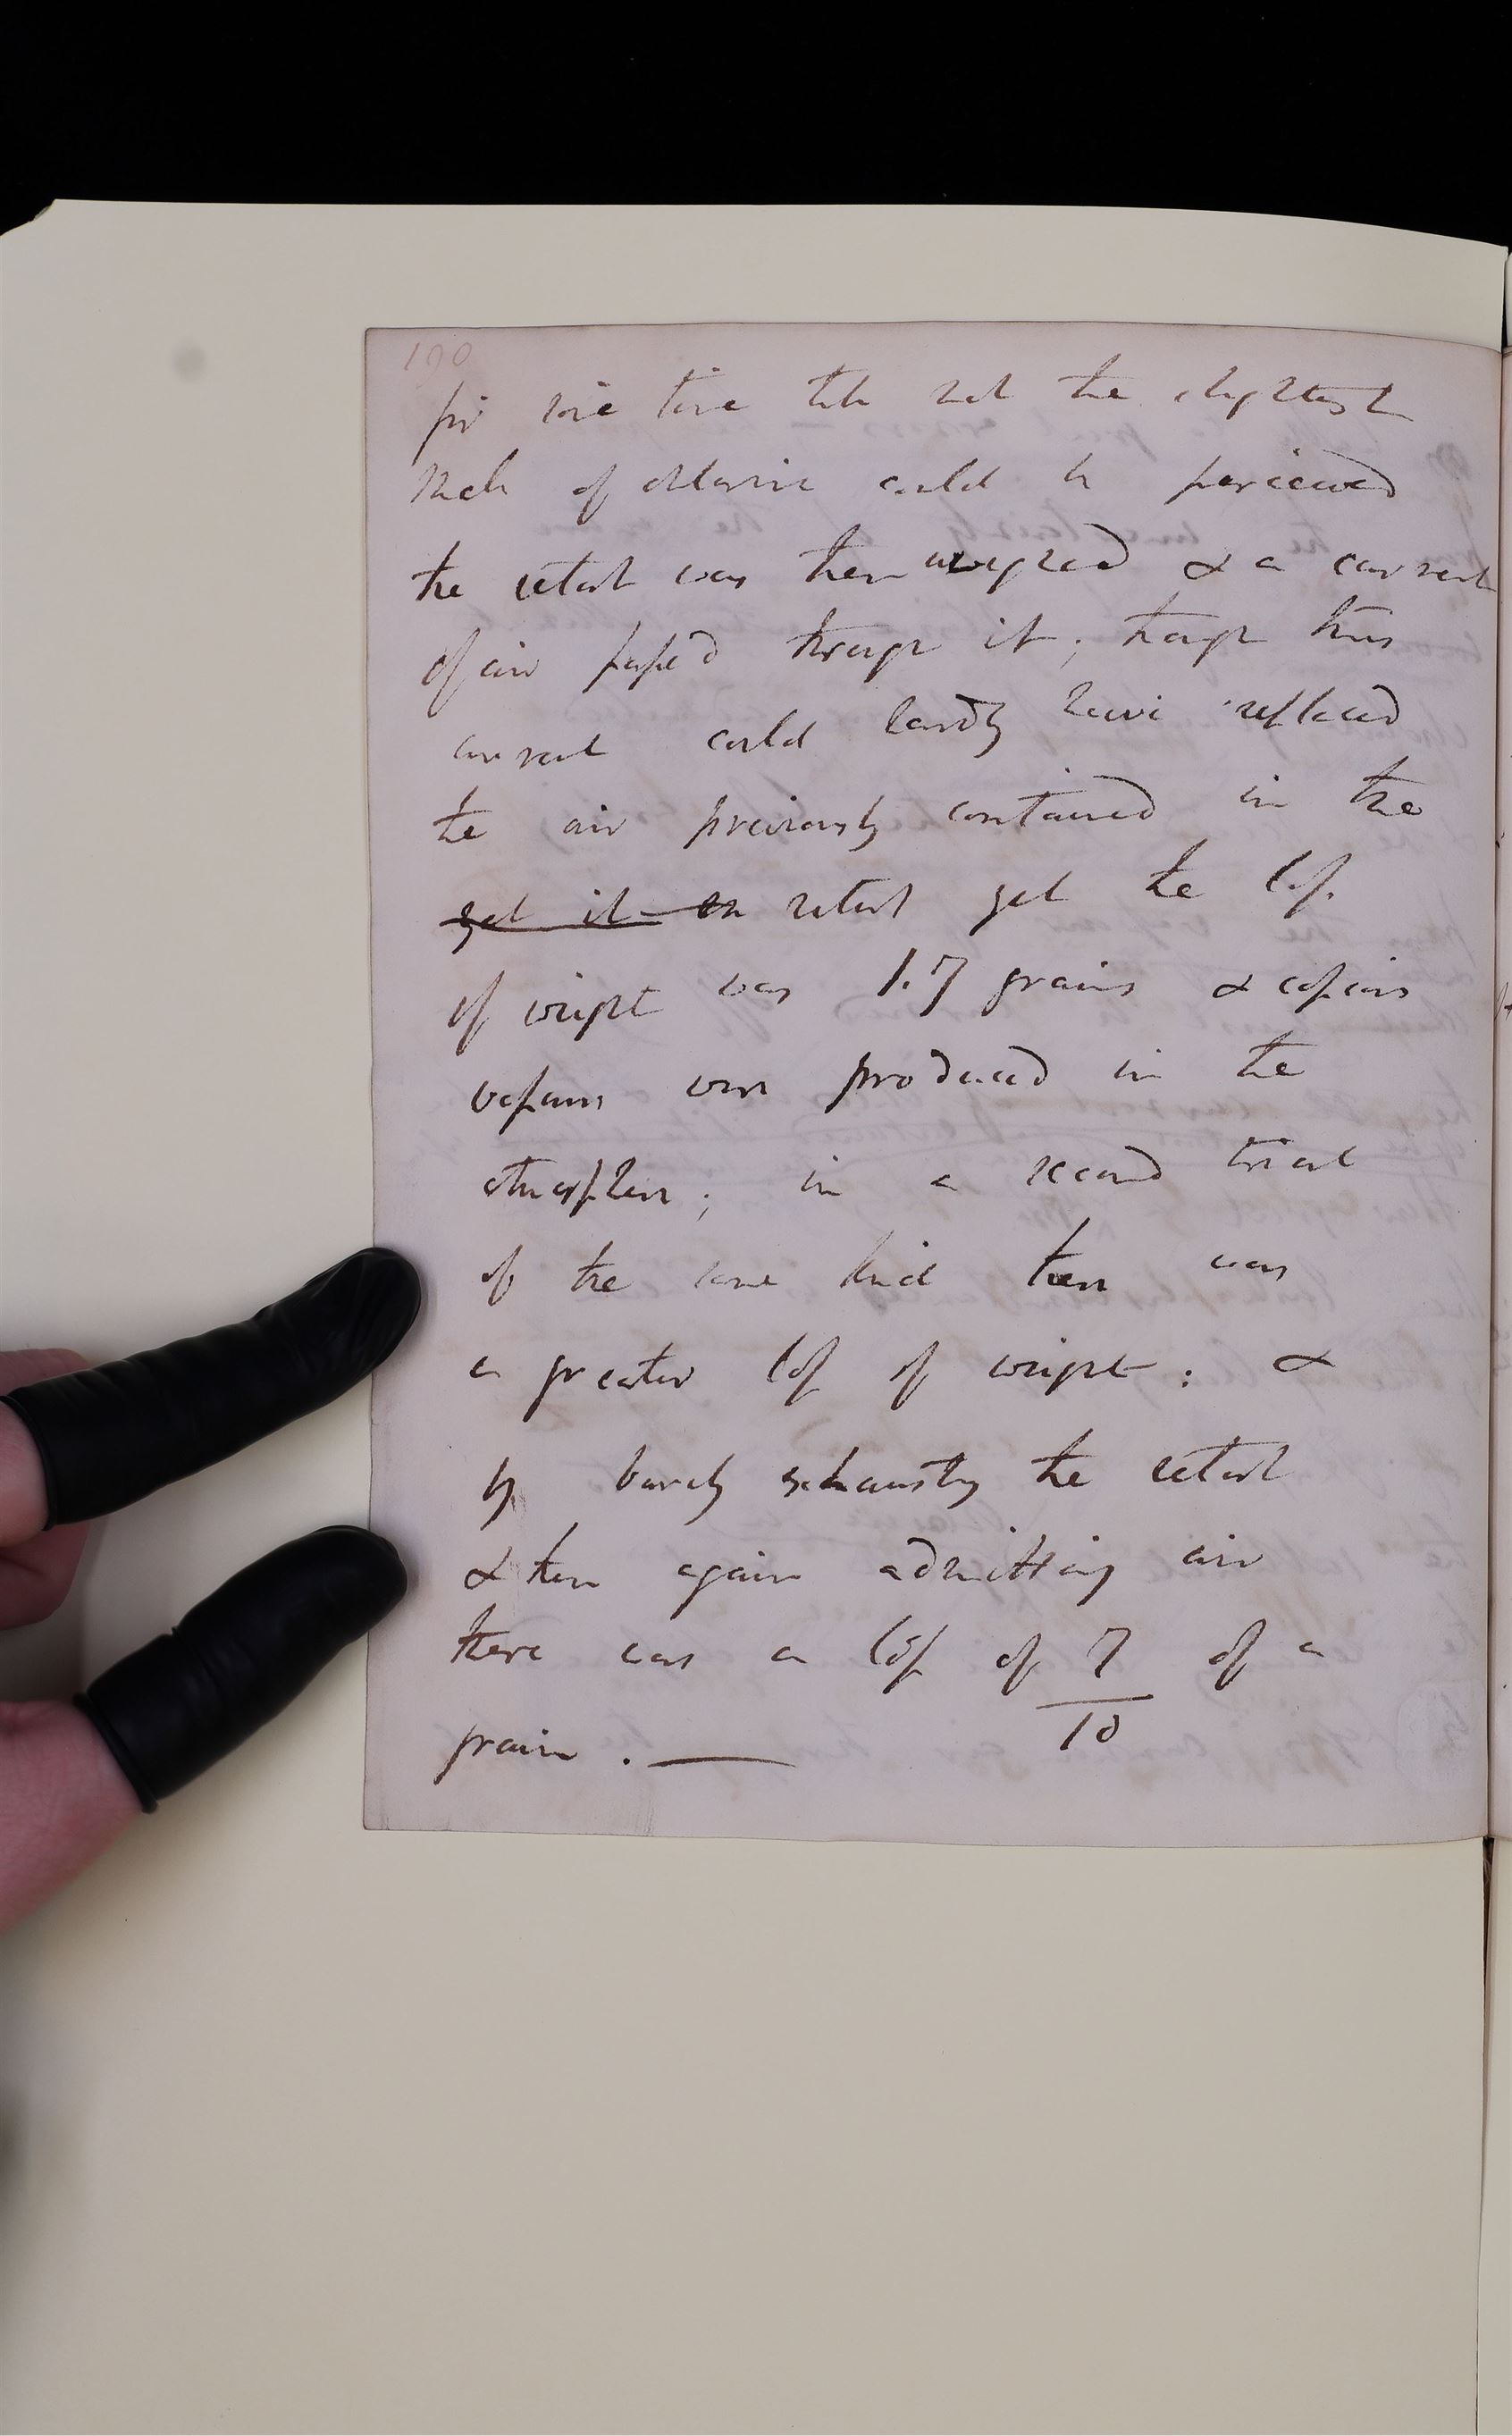 190
for some time till not the slightest
smell of chlorine could be perceived
the retort was then weighed & a current
of air passed through it; though this
current could hardly have replaced
the air previously contained in the
yet it on retort yet the loss
of weight was 1.7 grains & copious
vapours were produced in the
atmosphere; in a second trial
of the same kind there was
a greater loss of weight: &
by barely exhausting the retort
& then again admitting air
there was a loss of 7/10 of a
grain. —